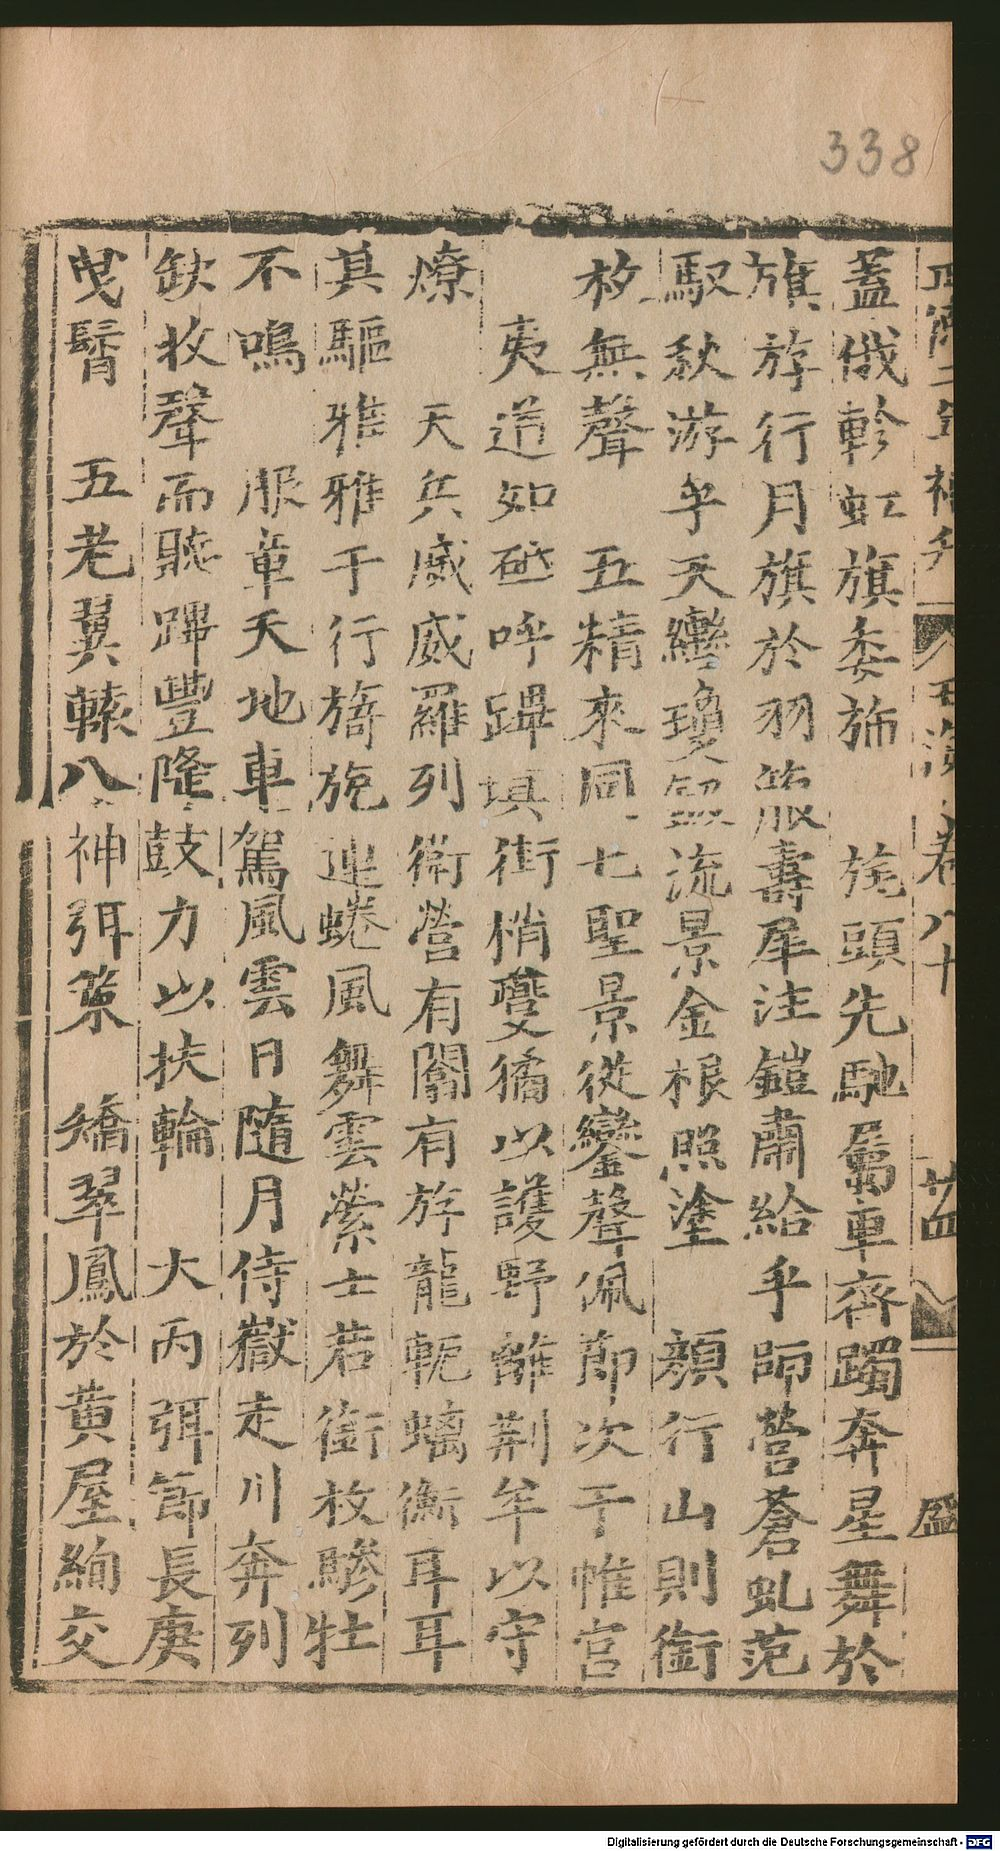 338
蓋俄軫虹旗委旆　旄頭先馳屬車齊躅奔星舞於
旗斿行月旗於羽箙壽犀注鎧肅給乎師營蒼虬范
馭秋游乎天纓瓊　流景金根照塗　顔行山則銜
枚無聲　五精來同七聖景從鑾聲佩節次于帷宮
夷道如砥呼蹕填街梢夔獝以護野離荆牟以守
燎　天兵威威羅列衛營有闟有斿龍軛螭衡耳耳
其驅雅雅于行旖旎連蜷風舞雲縈士若銜枚驂牡
不鳴　服章天地車駕風雲日隨月侍嶽走川奔列
缺收聲而聽蹕豐隆鼓力以扶輪　大丙弭節長庚
曳髾　五老翼轅八神弭策　矯翠鳳於黄屋絢交
卷八十
盛
Digitalisierung gefördert durch die Deutsche Forschungsgemeinschaft - DFG